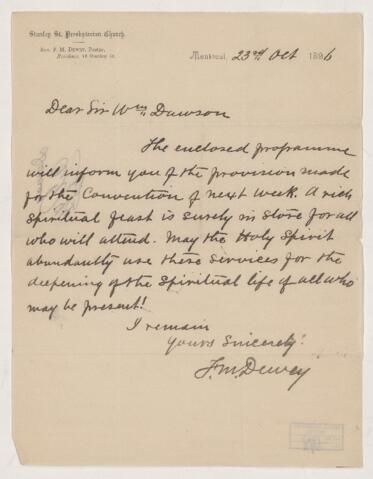 Stanley St. Presbyterian Church.
Rev. F. M. Dewey, Pastor,
Residence, 18 Stanley St.
Montreal, 23rd Oct 1896
Dear Sir Wm Dawson
The enclosed programme
will inform you of the provision made
for the Convention of next week. A rich
spiritual feast is surely in store for all
who will attend. May the Holy Spirit
abundantly use these services for the
deepening of the spiritual life of all who
may be present!
I remain
Yours Sincerely
F. M. Dewey